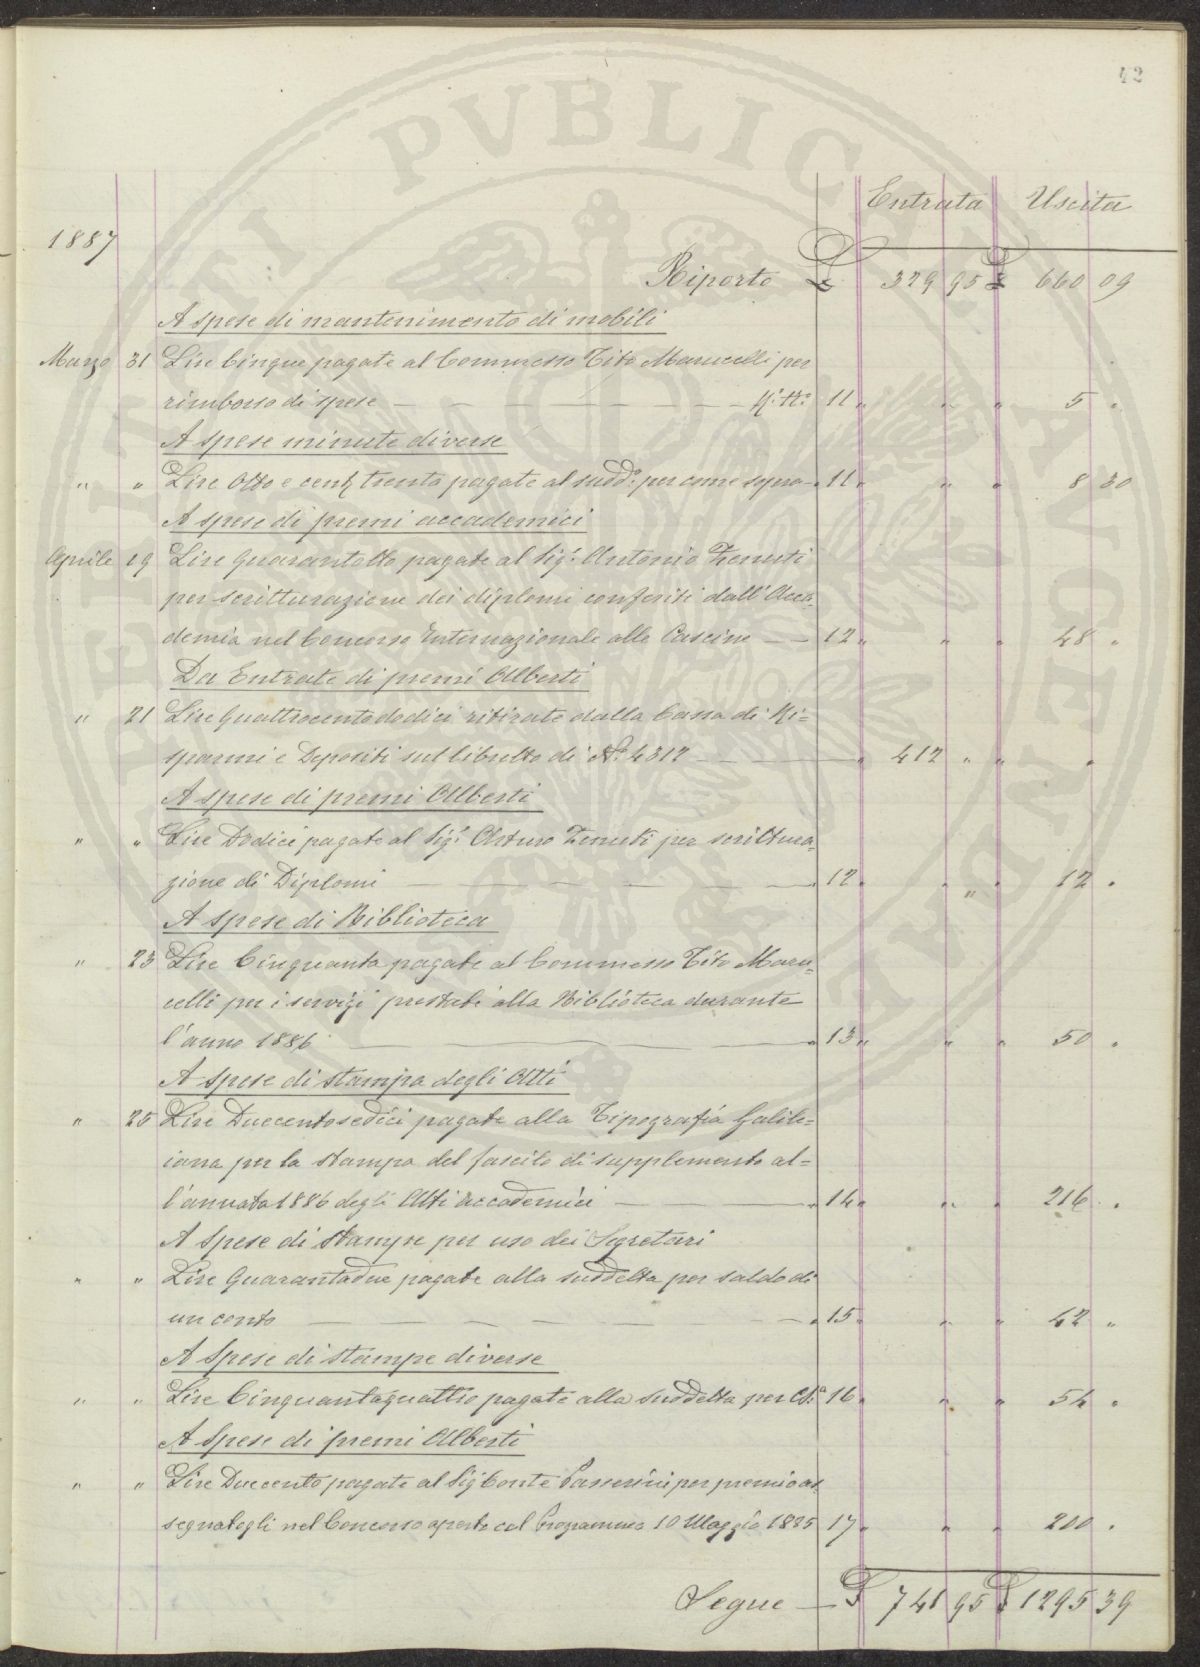 42
Entrata Uscita
1887
Riporto £ 329 95 £ 660 09
A spese di mantenimento di mobili
Marzo 31 Lire Cinque pagate al Commesso Tito Marucelli per
rimborso di spese — — — — — 11 " " " 5 "
A spese minute diverse
" " Lire Otto e cent. trenta pagate al sudd.o per come sopra — 11 " " " 8 30
A spese di premi accademici
Aprile 19 Lire Quarantotto pagate al Sig.r Antonio Zenuti
per scritturazione dei diplomi conferiti dall'Acca-
demia nel Concorso Internazionale alle Cascine — — 12 " " " 48 "
Da Entrate di premi Alberti
" 21 Lire Quattrocentododici ritirate dalla Cassa di Ri=
sparmi e Depositi sul libretto di N.o 4312 — — — " 412 " " "
A spese di premi Alberti
" " Lire Dodici pagate al Sig.r Arturo Zenuti per scrittura=
zione di Diplomi — — — — — 12 " " " 12 "
A spese di Biblioteca
" 23 Lire Cinquanta pagate al Commesso Tito Maru=
celli per i servigi prestati alla Biblioteca durante
l'anno 1886 — — — 13 " " " 50 "
A Spese di stampa degli Atti
" 25 Lire Duecentosedici pagate alla Tipografia Galile=
iana per la stampa del fascilo di supplemento al=
l'annata 1886 degli Atti accademici — — — 14 " " " 216 "
A Spese di stampe per uso dei Segretari
" " Lire Quarantadue pagate alla suddetta per saldo di
un conto — — — — — 15 " " " 42 "
A Spese di stampe diverse
" " Lire Cinquantaquattro pagate alla suddetta per C.S.a 16 " " " 54 "
A Spese di premi Alberti
" " Lire Duecento pagate al Sig Conte Passerini per premio as=
segnatogli nel Concorso aperto col Programma 10 Maggio 1885 17 " " " 200 "
Segue — £ 741 95 £ 1295 39